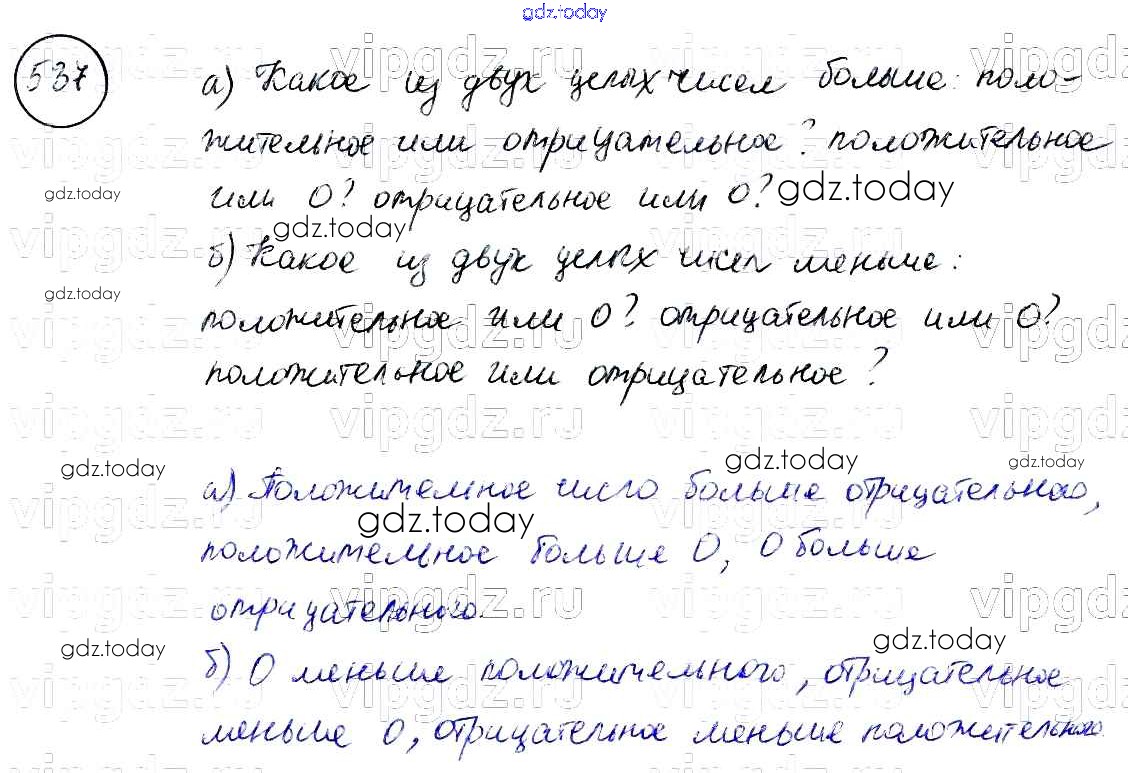 gdz.today
537
а) Какое из двух целых чисел больше: поло-
жительное или отрицательное? положительное
или 0? отрицательное или 0?
б) Какое из двух целых чисел меньше:
положительное или 0? отрицательное или 0?
положительное или отрицательное?
а) Положительное число больше отрицательного,
положительное больше 0, 0 больше
отрицательного.
б) 0 меньше положительного, отрицательное
меньше 0, отрицательное меньше положительного.